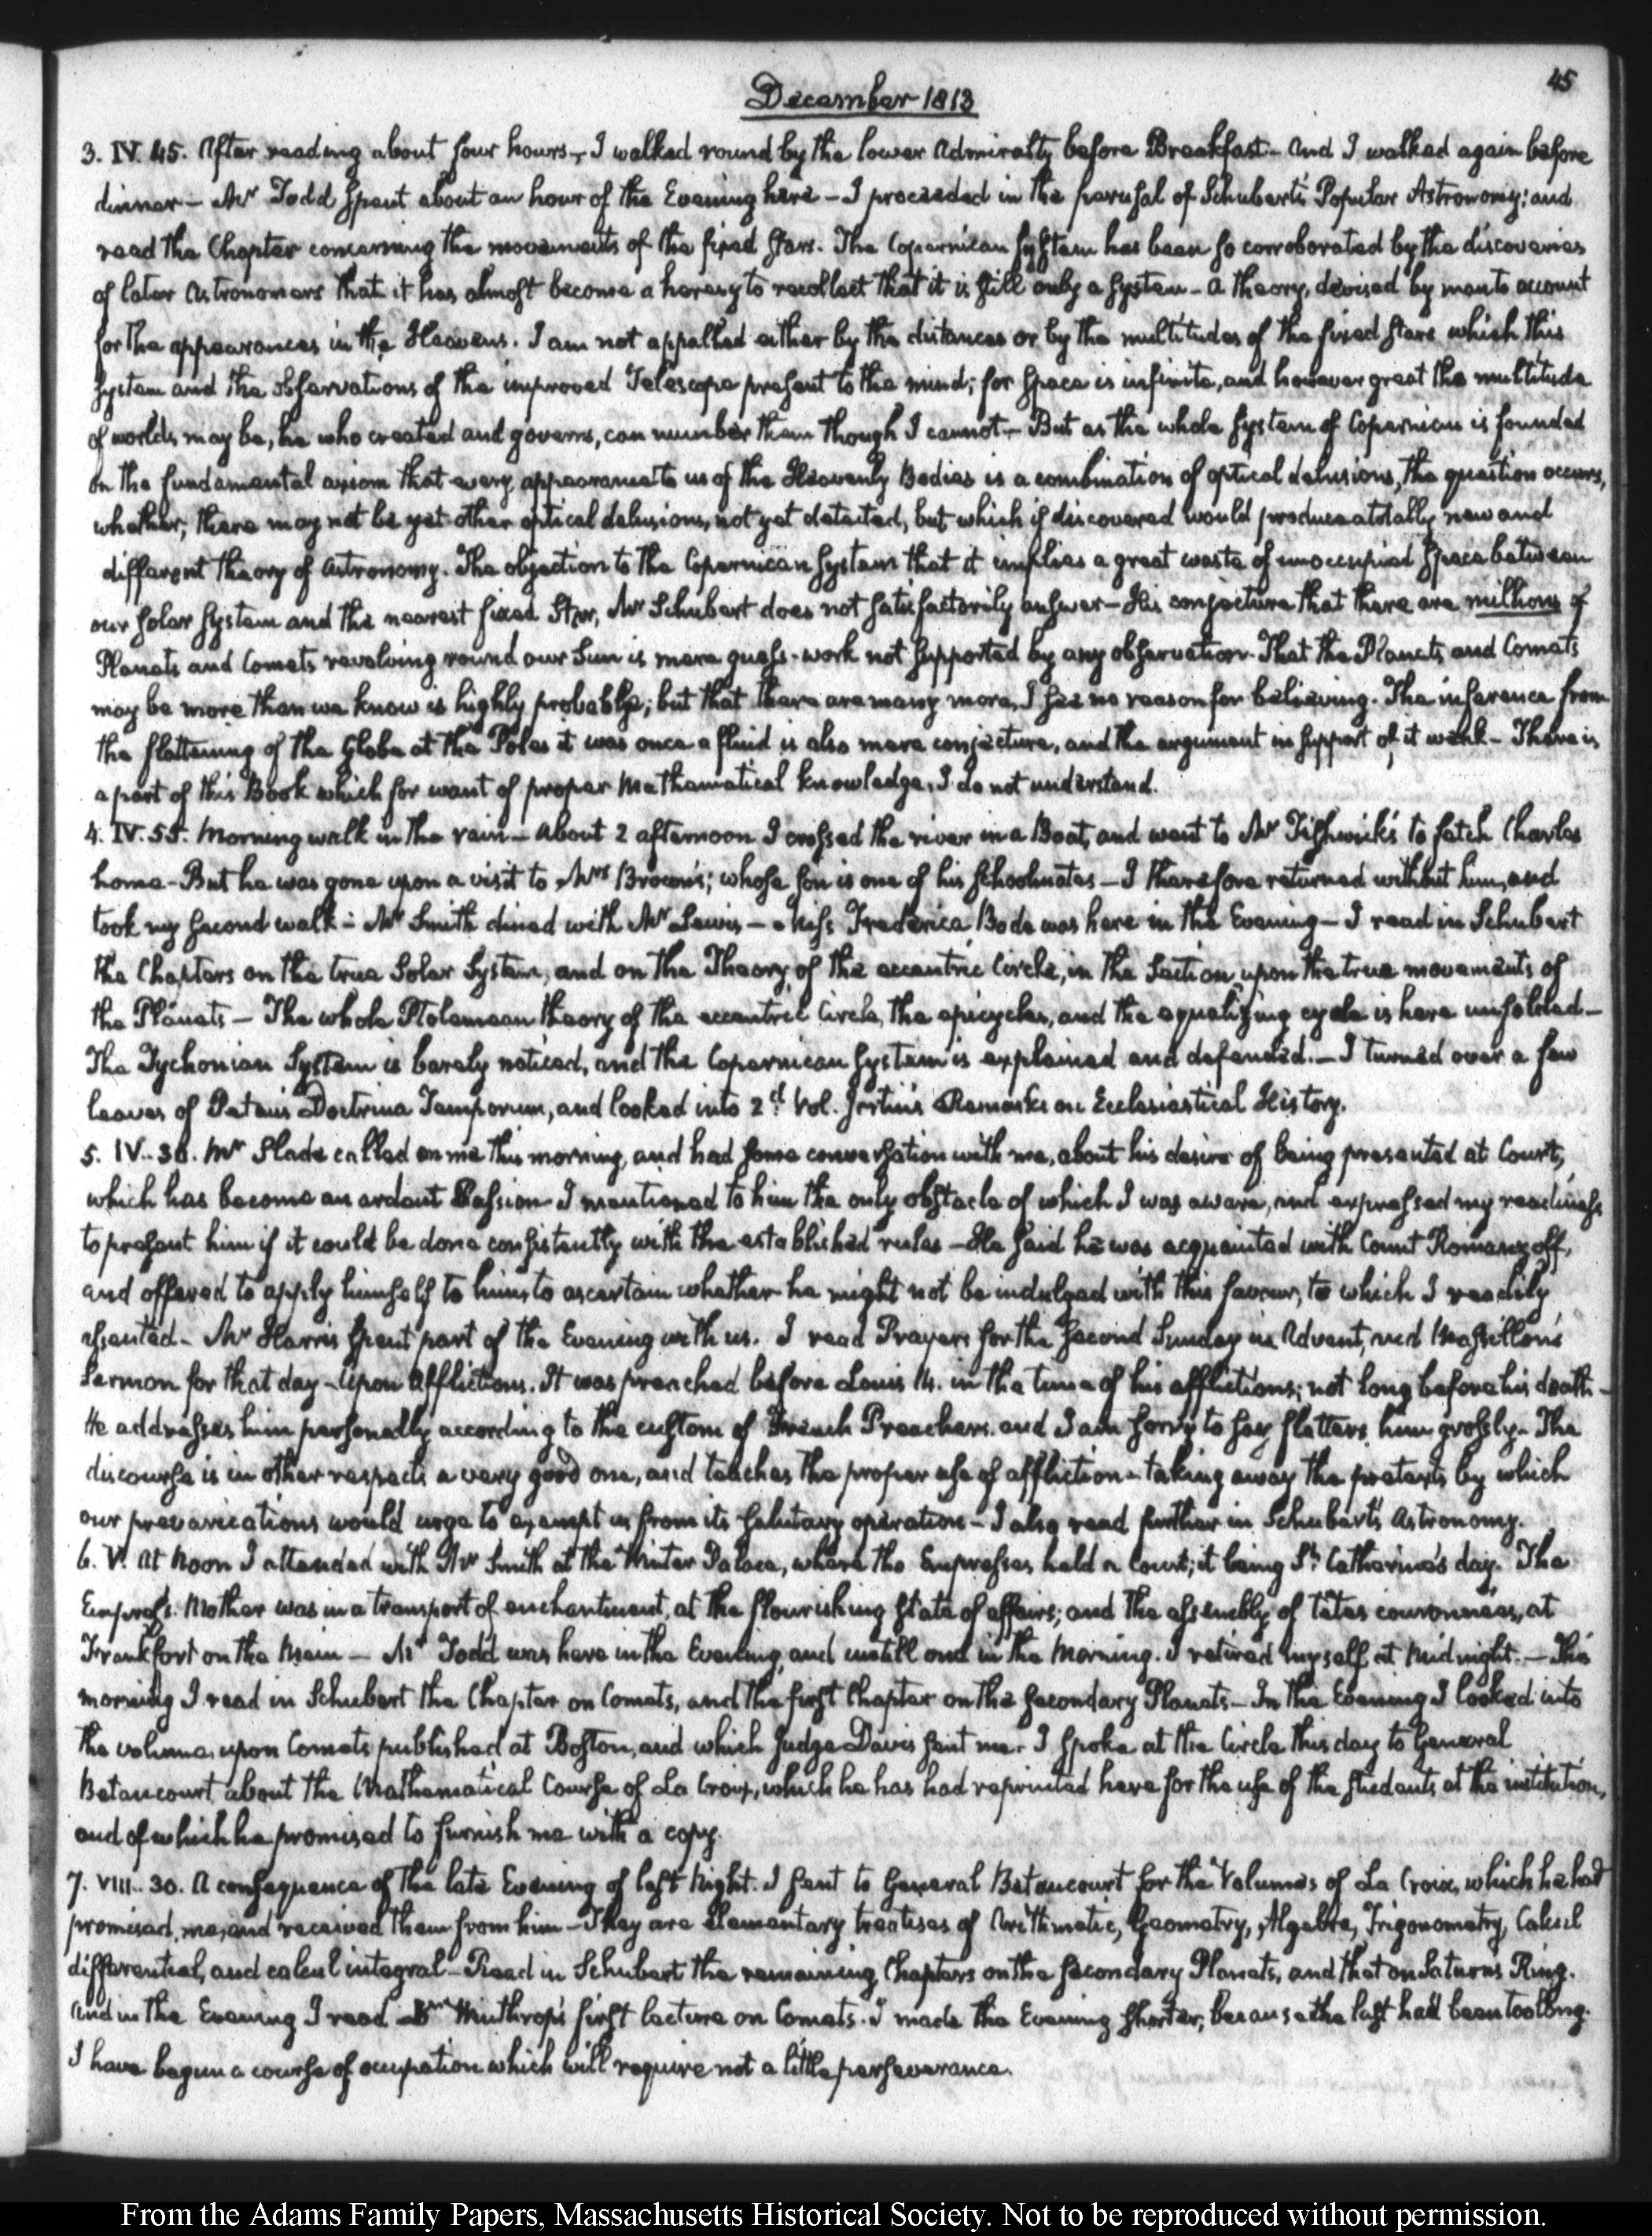 45
December 1813
3. IV. 45. After reading about four hours, I walked round by the lower Admiralty before Breakfast - And I walked again before
dinner - Mr Todd spent about an hour of the Evening here - I proceeded in the perusal of Schubert's Popular Astronomy; and
read the Chapter concerning the movements of the fixed stars. The Copernican System has been so corroborated by the discoveries
of later Astronomers that it has almost become a heresy to recollect that it is still only a system - a theory, devised by man to account
for the appearances in the Heavens. I am not appalled either by the distances or by the multitudes of the fixed stars which this
system and the observations of the improved Telescope present to the mind; for space is infinite, and however great the multitude
of worlds may be, he who created and governs, can number them though I cannot - But as the whole system of Copernicus is founded
on the fundamental axiom that every appearance to us of the Heavenly Bodies is a combination of optical delusions, the question occurs,
whether, there may not be yet other optical delusions, not yet detected, but which if discovered would produce a totally new and
different theory of Astronomy. The objection to the Copernican System that it implies a great waste of unoccupied space between
our solar system and the nearest fixed Star, Mr Schubert does not satisfactorily answer - His conjecture that there are millions of
Planets and Comets revolving round our Sun is mere guess-work not supported by any observation. That the Planets and Comets
may be more than we know is highly probable; but that there are many more, I see no reason for believing. The inference from
the flattening of the Globe at the Poles it was once a fluid is also mere conjecture, and the argument in support of it weak - There is
a part of this Book which for want of proper Mathematical knowledge, I do not understand.
4. IV. 55. Morning walk in the rain - About 2 afternoon I crossed the river in a Boat, and went to Mr Fishwick's to fetch Charles
home - But he was gone upon a visit to Mrs Brown's; whose son is one of his schoolmates - I therefore returned without him, and
took my second walk - Mr Smith dined with Mr Lewis - Miss Frederica Bode was here in the Evening - I read in Schubert
the Chapters on the true Solar System, and on the Theory of the eccentric Circle, in the Section upon the true movements of
the Planets - The whole Ptolemaean theory of the eccentric Circle, the epicycles, and the equalizing cycle is here unfolded -
The Tychonian System is barely noticed, and the Copernican System is explained and defended. - I turned over a few
leaves of Petau's Doctrina Temporum, and looked into 2d. Vol. Jortin's Remarks on Ecclesiastical History.
5. IV. 30. Mr Slade called on me this morning, and had some conversation with me, about his desire of being presented at Court,
which has become an ardent Passion - I mentioned to him the only obstacle of which I was aware, and expressed my readiness
to present him if it could be done consistently with the established rules - He said he was acquainted with Count Romanzoff,
and offered to apply himself to him, to ascertain whether he might not be indulged with this favour, to which I readily
assented - Mr Harris spent part of the Evening with us. I read Prayers for the second Sunday in Advent, and Massillon's
Sermon for that day - Upon Afflictions. It was preached before Louis 14. in the time of his afflictions; not long before his death -
He addresses him personally according to the custom of French Preachers, and I am sorry to say flatters him grossly - The
discourse is in other respects a very good one, and teaches the proper use of affliction - taking away the pretexts by which
our prevarications would urge to exempt us from its salutary operation - I also read further in Schubert's Astronomy.
6. V. At Noon I attended with Mr Smith at the Winter Palace, where the Empresses held a Court; it being St. Catherine's day. The
Empress Mother was in a transport of enchantment, at the flourishing state of affairs; and the assembly of têtes couronnées, at
Frankfort on the Mein - Mr Todd was here in the Evening, and untill one in the Morning. I retired myself at Midnight. - This
morning I read in Schubert the Chapter on Comets, and the first Chapter on the secondary Planets - In the Evening I looked into
the volume, upon Comets published at Boston, and which Judge Davis sent me. I spoke at the Circle this day to General
Betancourt about the Mathematical Course of La Croix, which he has had reprinted here for the use of the students at the institution,
and of which he promised to furnish me with a copy.
7. VIII. 30. A consequence of the late Evening of last Night. I sent to General Betancourt for the Volumes of La Croix, which he had
promised me, and received them from him - They are elementary treatises of Arithmetic, Geometry, Algebra, Trigonometry, Calcul
differential, and calcul integral - Read in Schubert the remaining Chapters on the secondary Planets, and that on Saturns Ring.
And in the Evening I read Winthrop's first lecture on Comets. I made the Evening shorter, because the last had been too long.
I have begun a course of occupation which will require not a little perseverance.
From the Adams Family Papers, Massachusetts Historical Society. Not to be reproduced without permission.